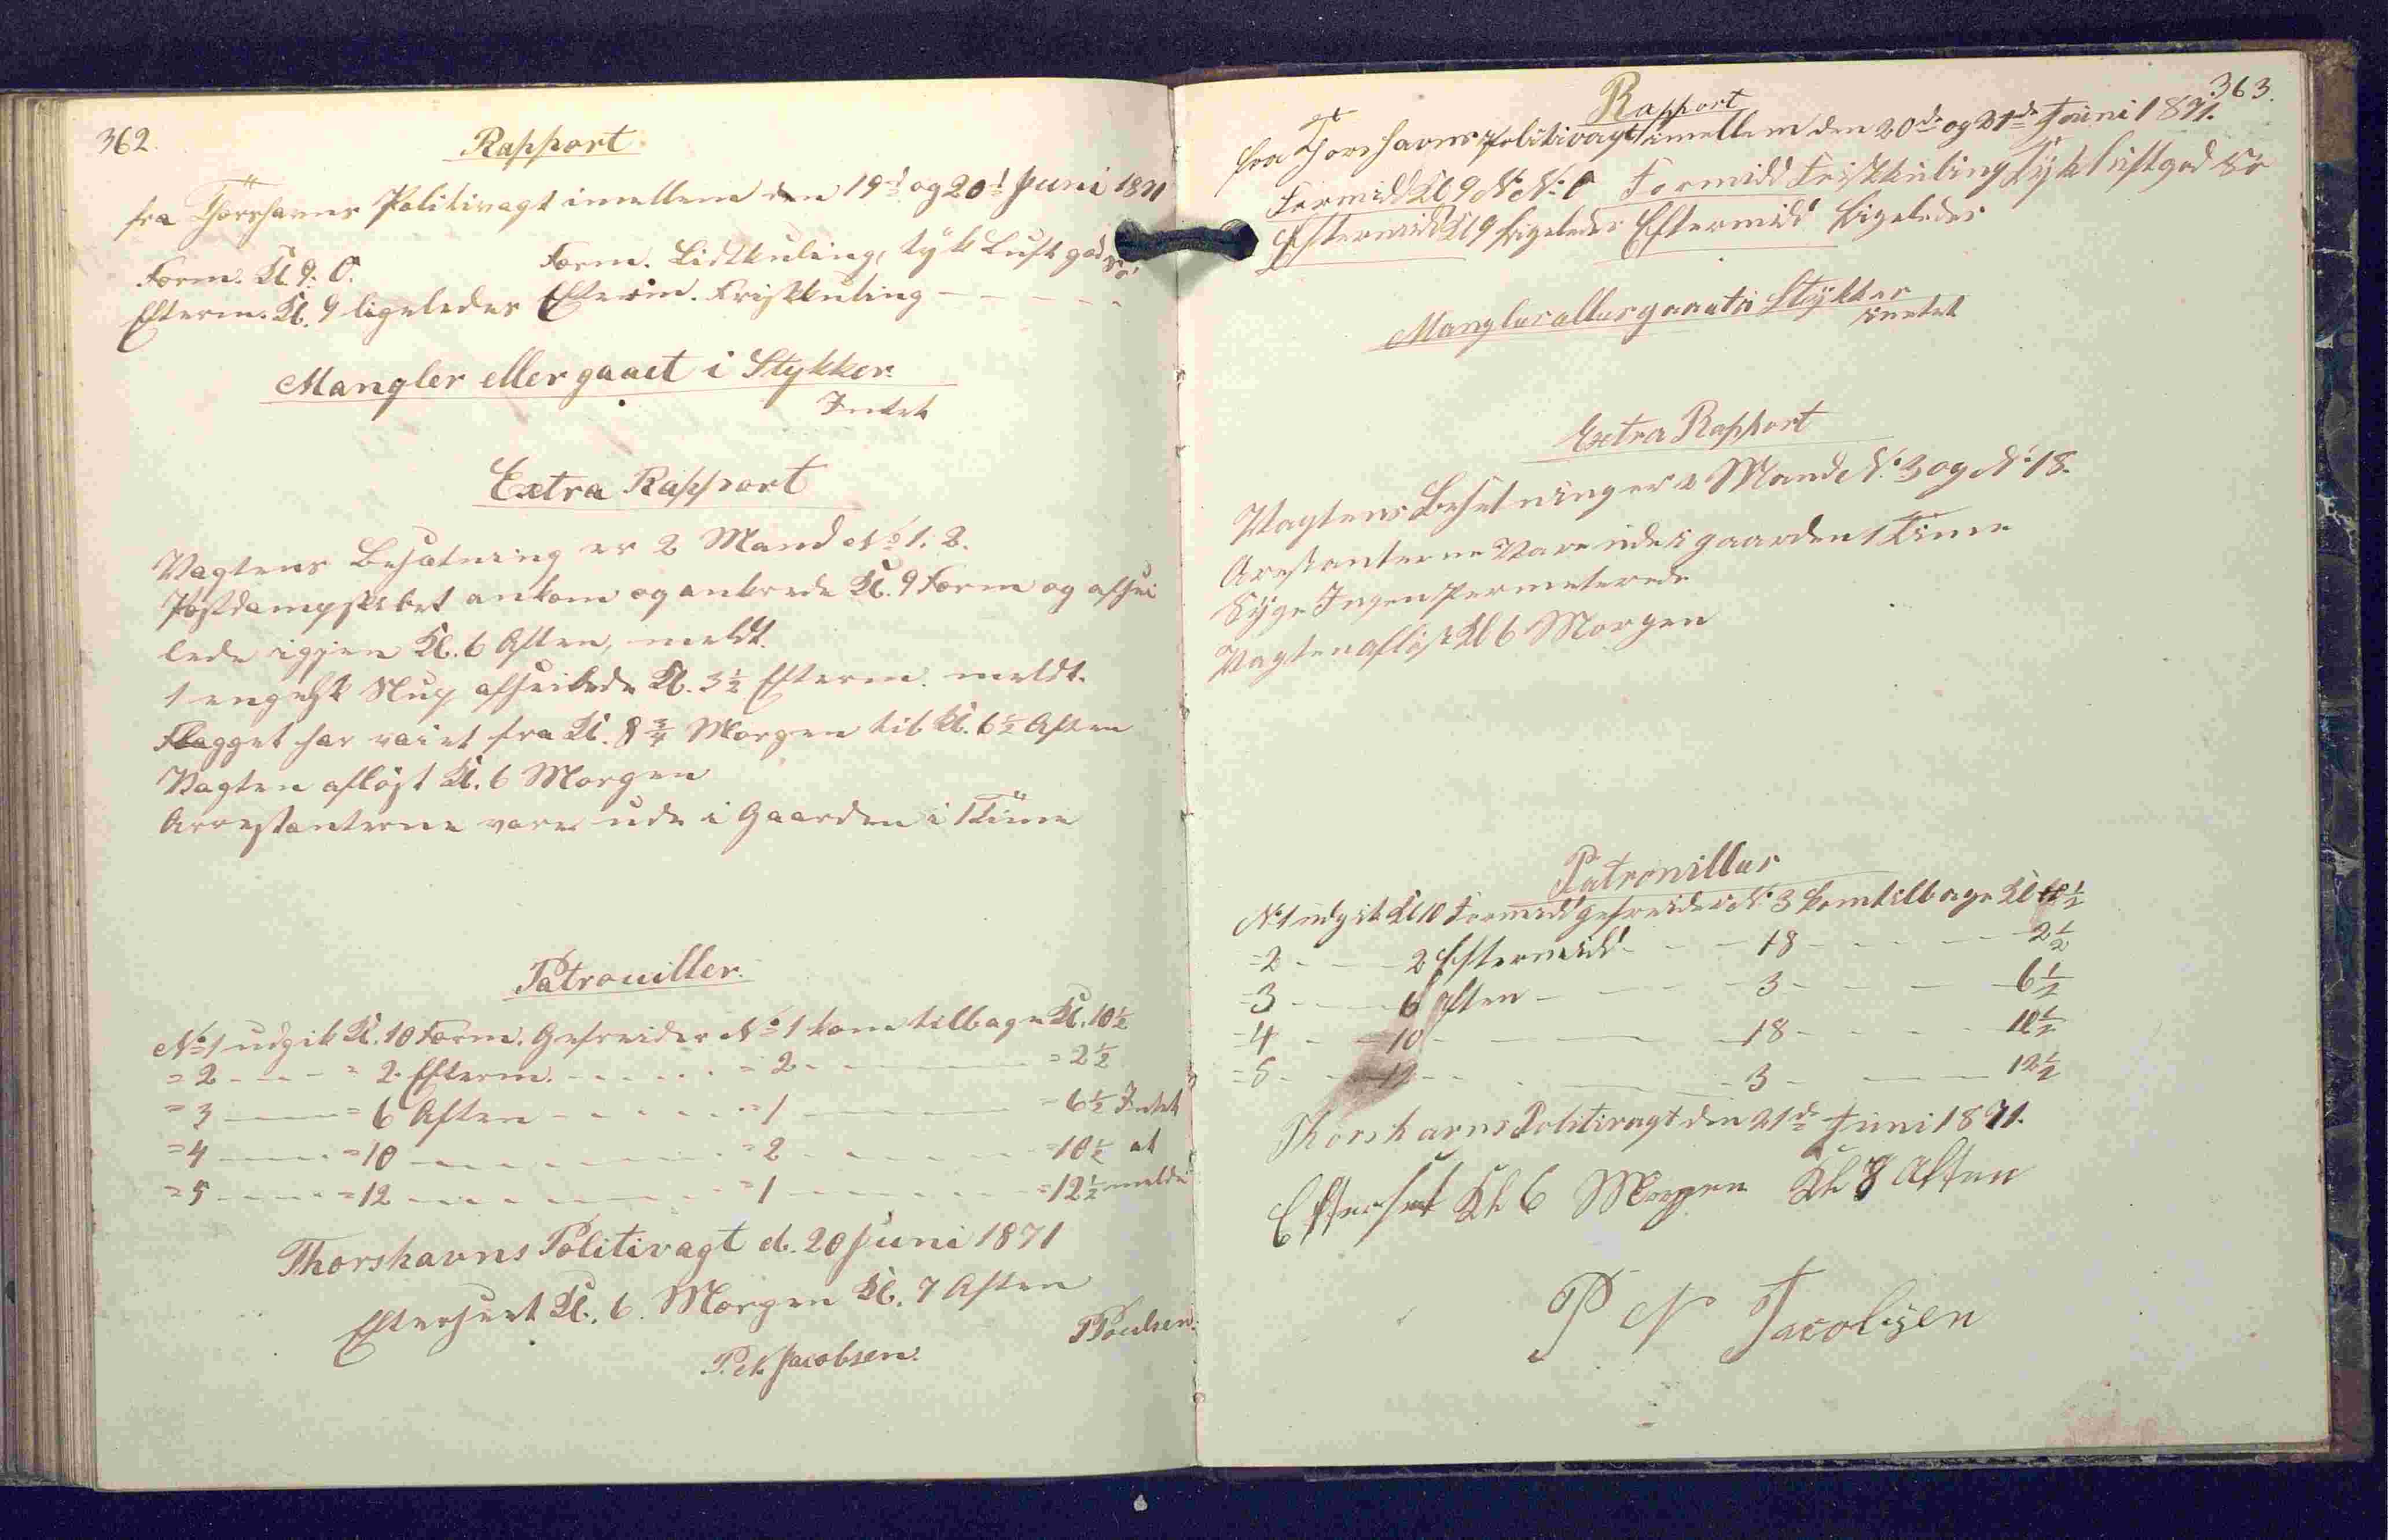 362.
Rapport
fra Thorshavns Politivagt imellem den 19d og 20d Juni 1871
Form. Kl. 9. O. Form. Lidtkuling, tyk Luft god Sö
Efterm. Kl. 9 ligeledes Efterm. Friskkuling - - - - -
Mangler eller gaaet i Stykker.
Intet
Extra Rapport
Vagtens Besætning er 2 Mand No 1. 2.
Postdampskibet ankom og ankrede Kl. 9 Form og afsei
lede igjen Kl. 6 Aften, meldt.
1 engelsk Slup afseilede Kl. 3½ Efterm. meldt.
Flagget har vaiet fra Kl. 8¾ Morgen til Kl. 6½ Aften
Vagten aflöst Kl. 6 Morgen
Arrestanterne vare ude i Gaarden i 1 Time
Patrouiller.
No 1 udgik Kl. 10 Form. Gefreider No 1 kom tilbage Kl. 10½
= 2 - - - = 2. Efterm. - - - - = 2 - - - = 2½
= 3 - - - = 6 Aften - - - - = 1 - - - = 6½ Intet
= 4 - - - = 10 - - - - = 2 - - - = 10½ at
= 5 - - - = 12 - - - - = 1 - - - = 12½ melde
Thorshavns Politivagt d. 20 Juni 1871
Efterseet Kl. 6. Morgen Kl. 7 Aften
P. N. Jacobsen. PPoulsen.
363.
Rapport
fra Thorshavns Politivagt imellem den 20de og 21de Juni 1871.
Formidd Kl 9 N. N. O Formidd Friskkuling Tyk luft god Sö
Eftermidd Kl 9 ligeledes Eftermidd ligeledes
Mangler eller gaaet i Stykker
intet
Extra Rapport
Vagtens Besetning er 2 Mand No. 3 og No. 18.
Arestanterne Vare ude i gaarden 1 Time
Syge Ingen Permeterede
Vagten aflöst Kl 6 Morgen
Patrouiller
No 1 udgik Kl 10 Formidd gefreider No 3 kom tilbage Kl 10½
= 2 - - - 2 Eftermidd - - - 18 - - - 2½
= 3 - - - 6 Aften - - - 3 - - - 6½
= 4 - - - 10 - - - 18 - - - 10½
= 5 - - - 12 - - - 3 - - - 12½
Thorshavns Politivagt den 21de Juni 1871.
Efterseet Kl 6 Morgen Kl 8 Aften
P N Jacobsen